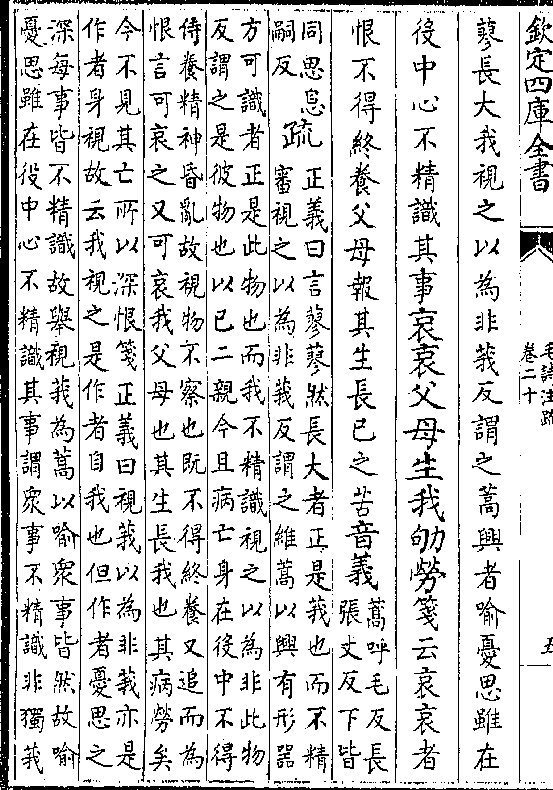 欽定四庫全書
毛詩注疏
卷二十
五
蓼長大我視之以為非莪反謂之蒿興者喻憂思雖在
役中心不精識其事哀哀父母生我劬勞箋云哀哀者
恨不得終養父母報其生長已之苦音義
蒿呼毛反長
張丈反下皆
同思息
嗣反
疏
正義曰言蓼蓼然長大者正是莪也而不精
審視之以為非莪反謂之維蒿以興有形器
方可識者正是此物也而我不精識視之以為非此物
反謂之是彼物也以已二親今且病亡身在役中不得
侍養精神昏亂故視物不察也既不得終養又追而為
恨言可哀之又可哀我父母也其生長我也其病勞矣
今不見其亡所以深恨箋正義曰視莪以為非莪亦是
作者身視故云我視之是作者自我也但作者憂思之
深每事皆不精識故舉視莪為蒿以喻衆事皆然故喻
憂思雖在役中心不精識其事謂衆事不精識非獨莪